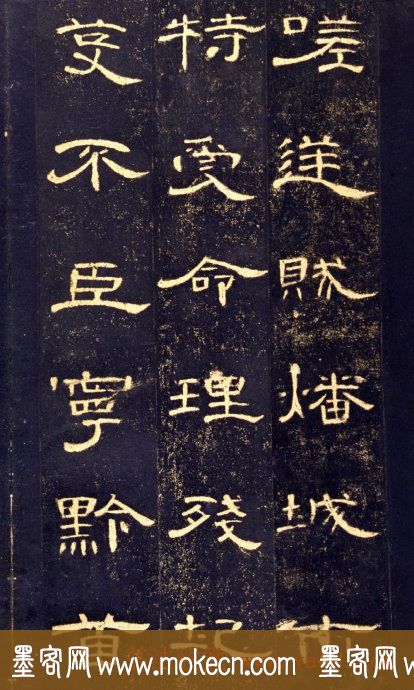 嗟逆賊燔城市
特受命理殘圮
芟不臣寧黔首
墨客网 www.mokecn.com 墨客网